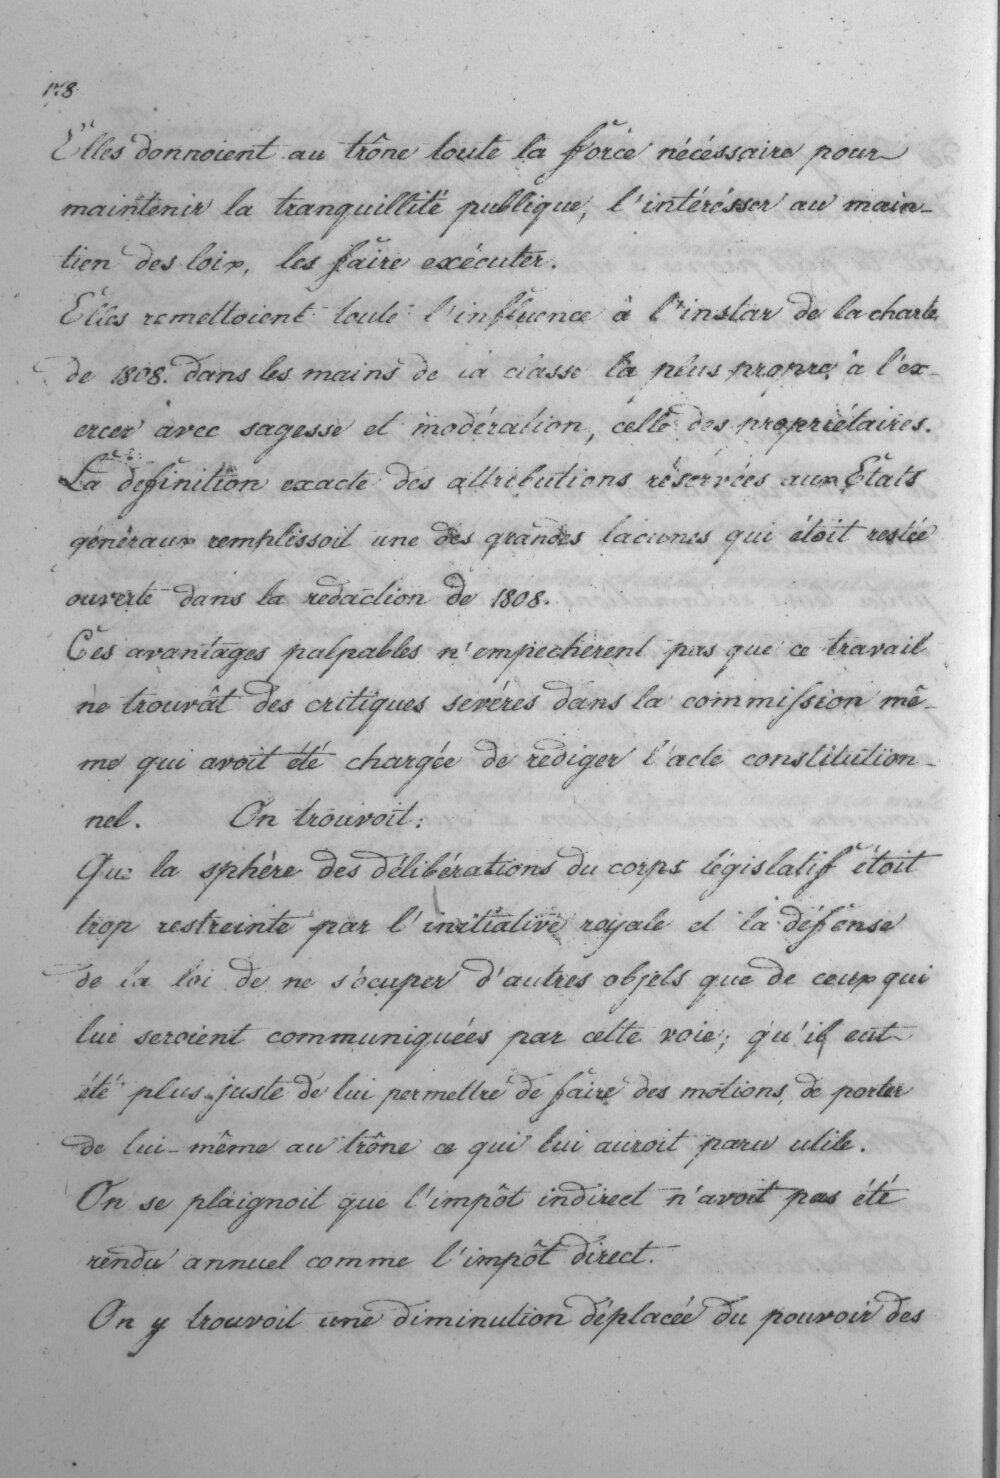 178.
Elles donnoient au trône toute la force nécéssaire pour
maintenir la tranquillité publique, l'intérésser au main-
tien des loix, les faire exécuter.
Elles remettoient toute l'influence à l'instar de la charte
de 1808. dans les mains de la classe la plus propre à l'ex-
ercer avec sagesse et modération, celle des propriétaires.
La definition exacte des attributions réservées aux Etats
généraux remplissoit une des grandes lacunes qui étoit restée
ouverte dans la redaction de 1808.
Ces avantages palpables n'empecherent pas que ce travail
ne trouvât des critiques sevéres dans la commission mê-
me qui avoit été chargée de rediger l'acte constitution-
nel. On trouvoit:
Que la sphère des délibérations du corps législatif étoit
trop restreinte par l'initiative royale et la défense
de la loi de ne s'ocuper d'autres objets que de ceux qui
lui seroient communiquées par cette voie; qu'il eut
été plus juste de lui permettre de faire des motions, de porter
de lui-même au trône ce qui lui auroit paru utile.
On se plaignoit que l'impôt indirect n'avoit pas été
rendu annuel comme l'impôt direct.
On y trouvoit une diminution déplacée du pouvoir des